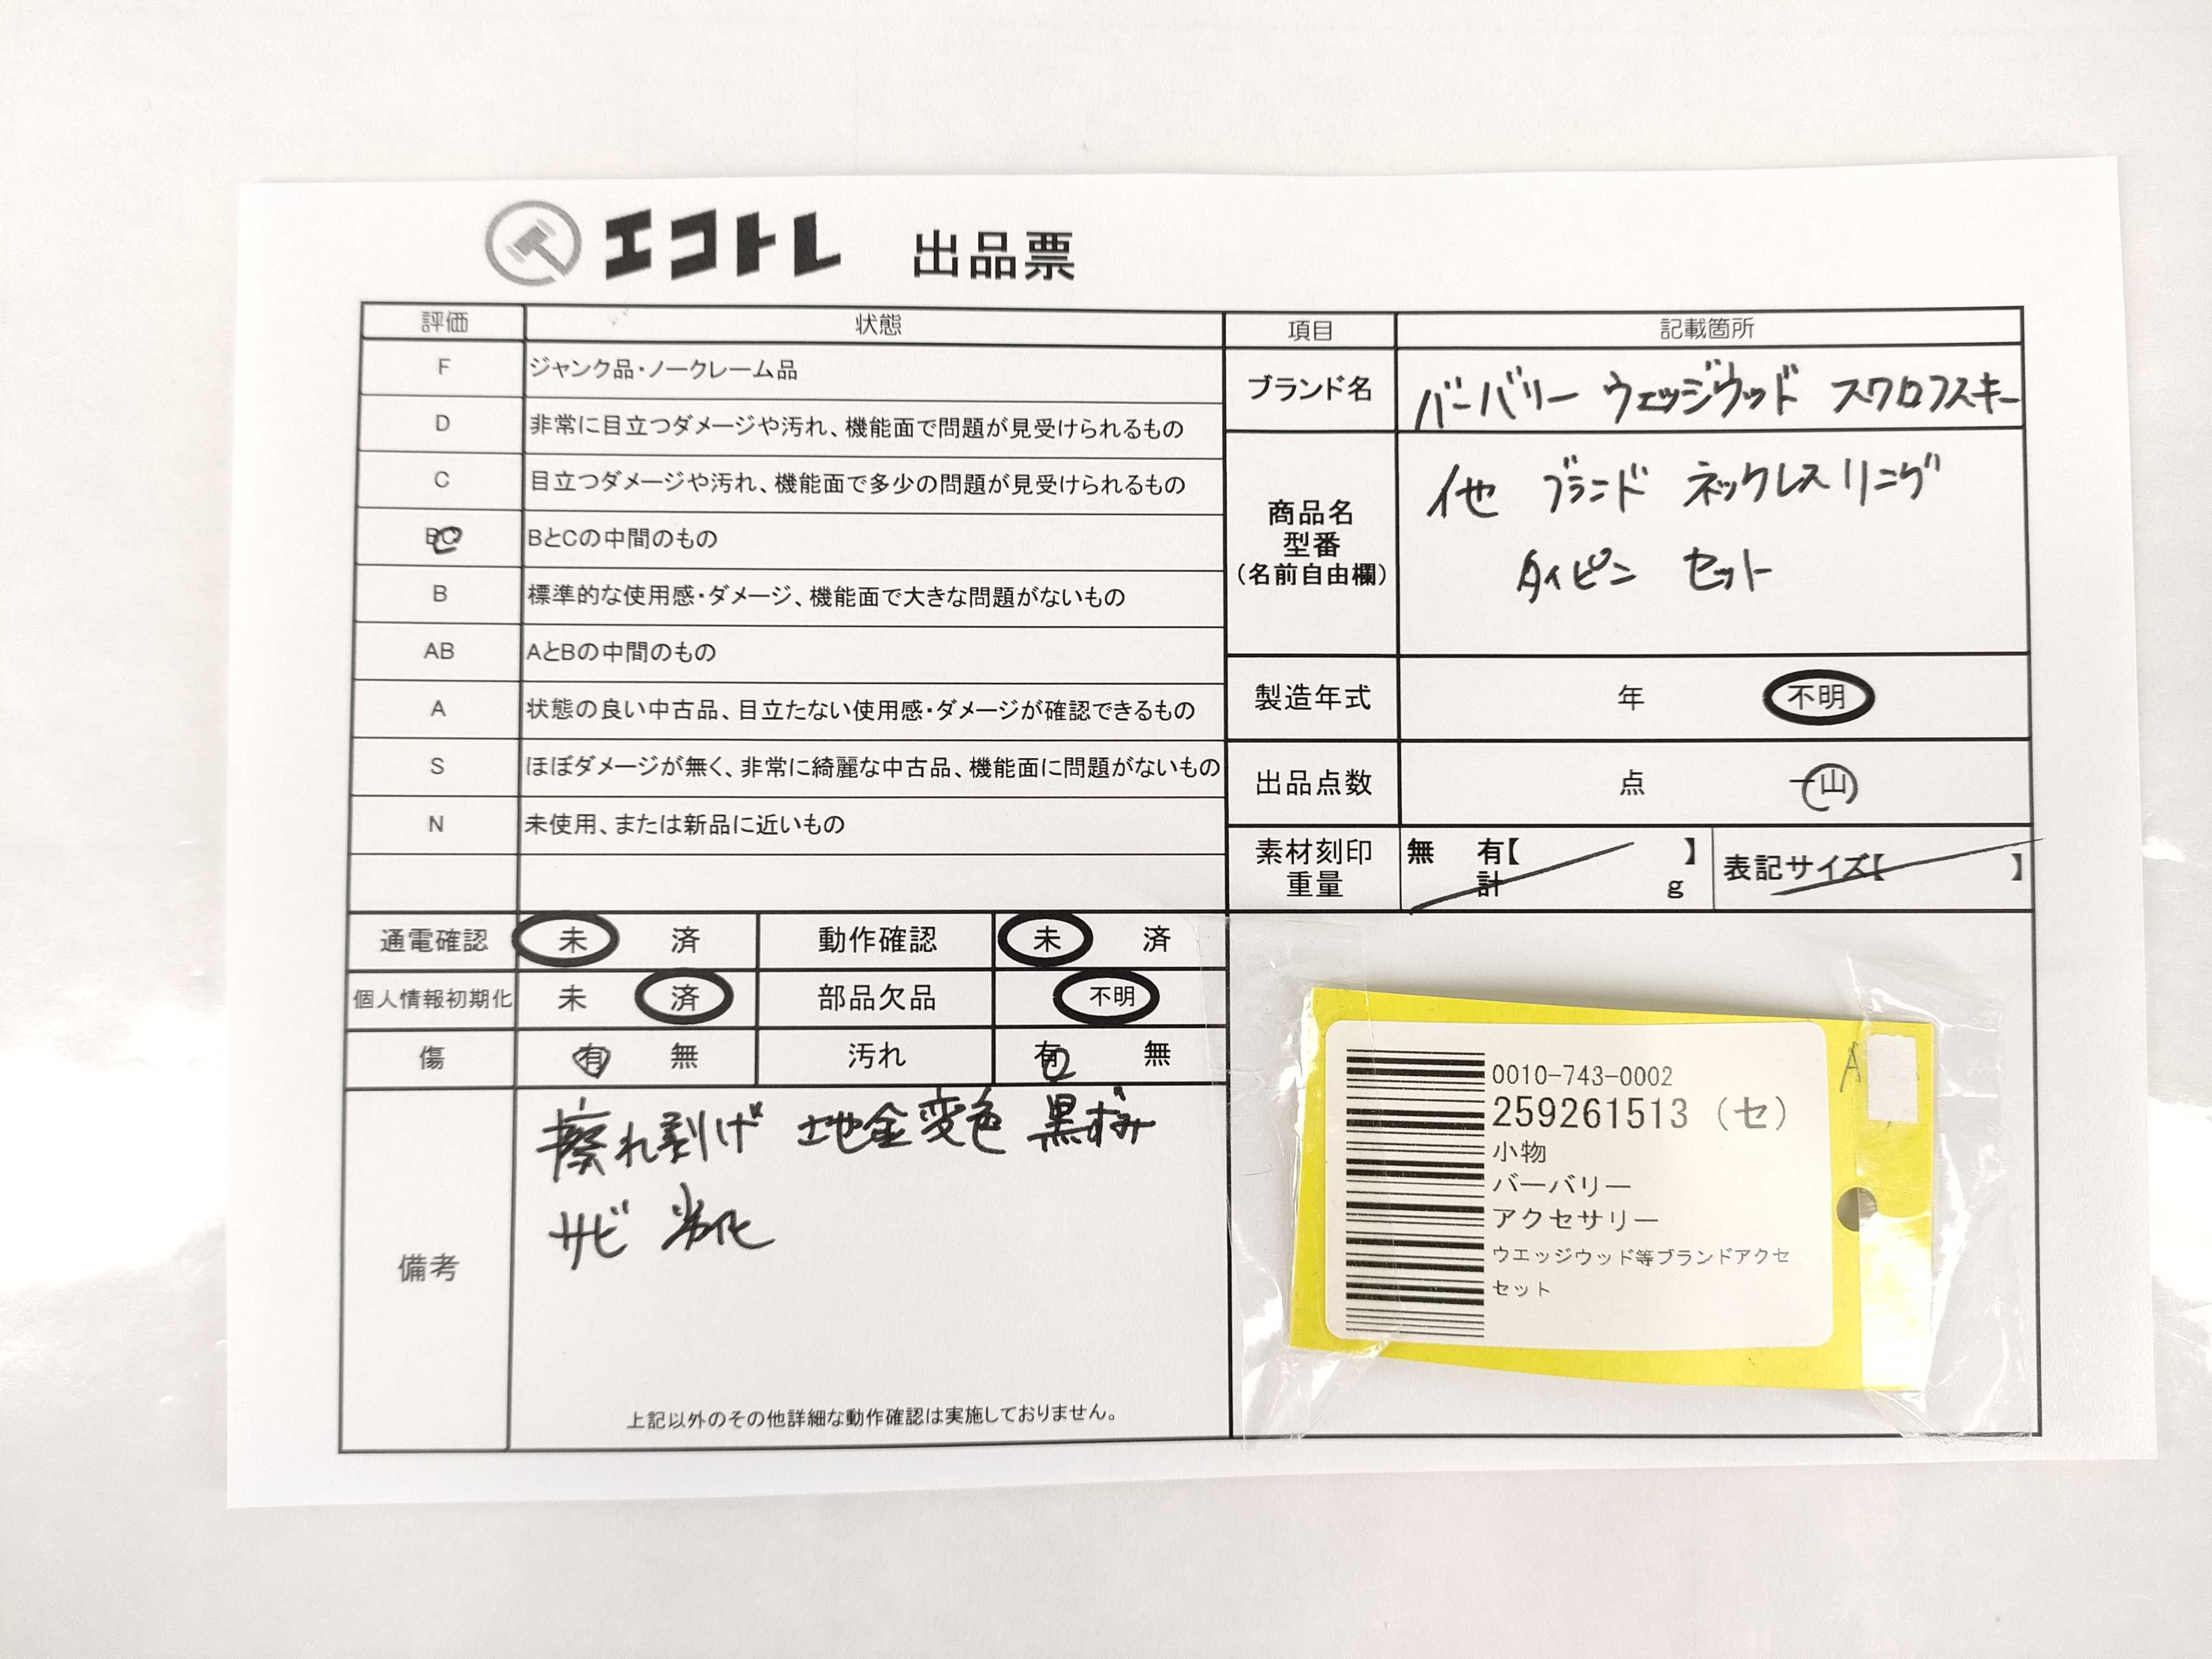 エコトレ 出品票
評価 状態
F ジャンク品・ノークレーム品
D 非常に目立つダメージや汚れ、機能面で問題が見受けられるもの
C 目立つダメージや汚れ、機能面で多少の問題が見受けられるもの
BC BとCの中間のもの
B 標準的な使用感・ダメージ、機能面で大きな問題がないもの
AB AとBの中間のもの
A 状態の良い中古品、目立たない使用感・ダメージが確認できるもの
S ほぼダメージが無く、非常に綺麗な中古品、機能面に問題がないもの
N 未使用、または新品に近いもの
項目 記載箇所
ブランド名 バーバリー ウェッジウッド スワロフスキー
商品名
型番
(名前自由欄)
他 ブランド ネックレスリング
タイピン セット
製造年式 年 不明
出品点数 点 一山
素材刻印 無 有【 】
重量 計 g
表記サイズ【 】
通電確認 未 済 動作確認 未 済
個人情報初期化 未 済 部品欠品 不明
傷 有 無 汚れ 有 無
備考
擦れ剥げ 地金変色 黒ずみ
サビ 劣化
上記以外のその他詳細な動作確認は実施しておりません。
0010-743-0002
259261513 (セ)
小物
バーバリー
アクセサリー
ウエッジウッド等ブランドアクセ
セット
A